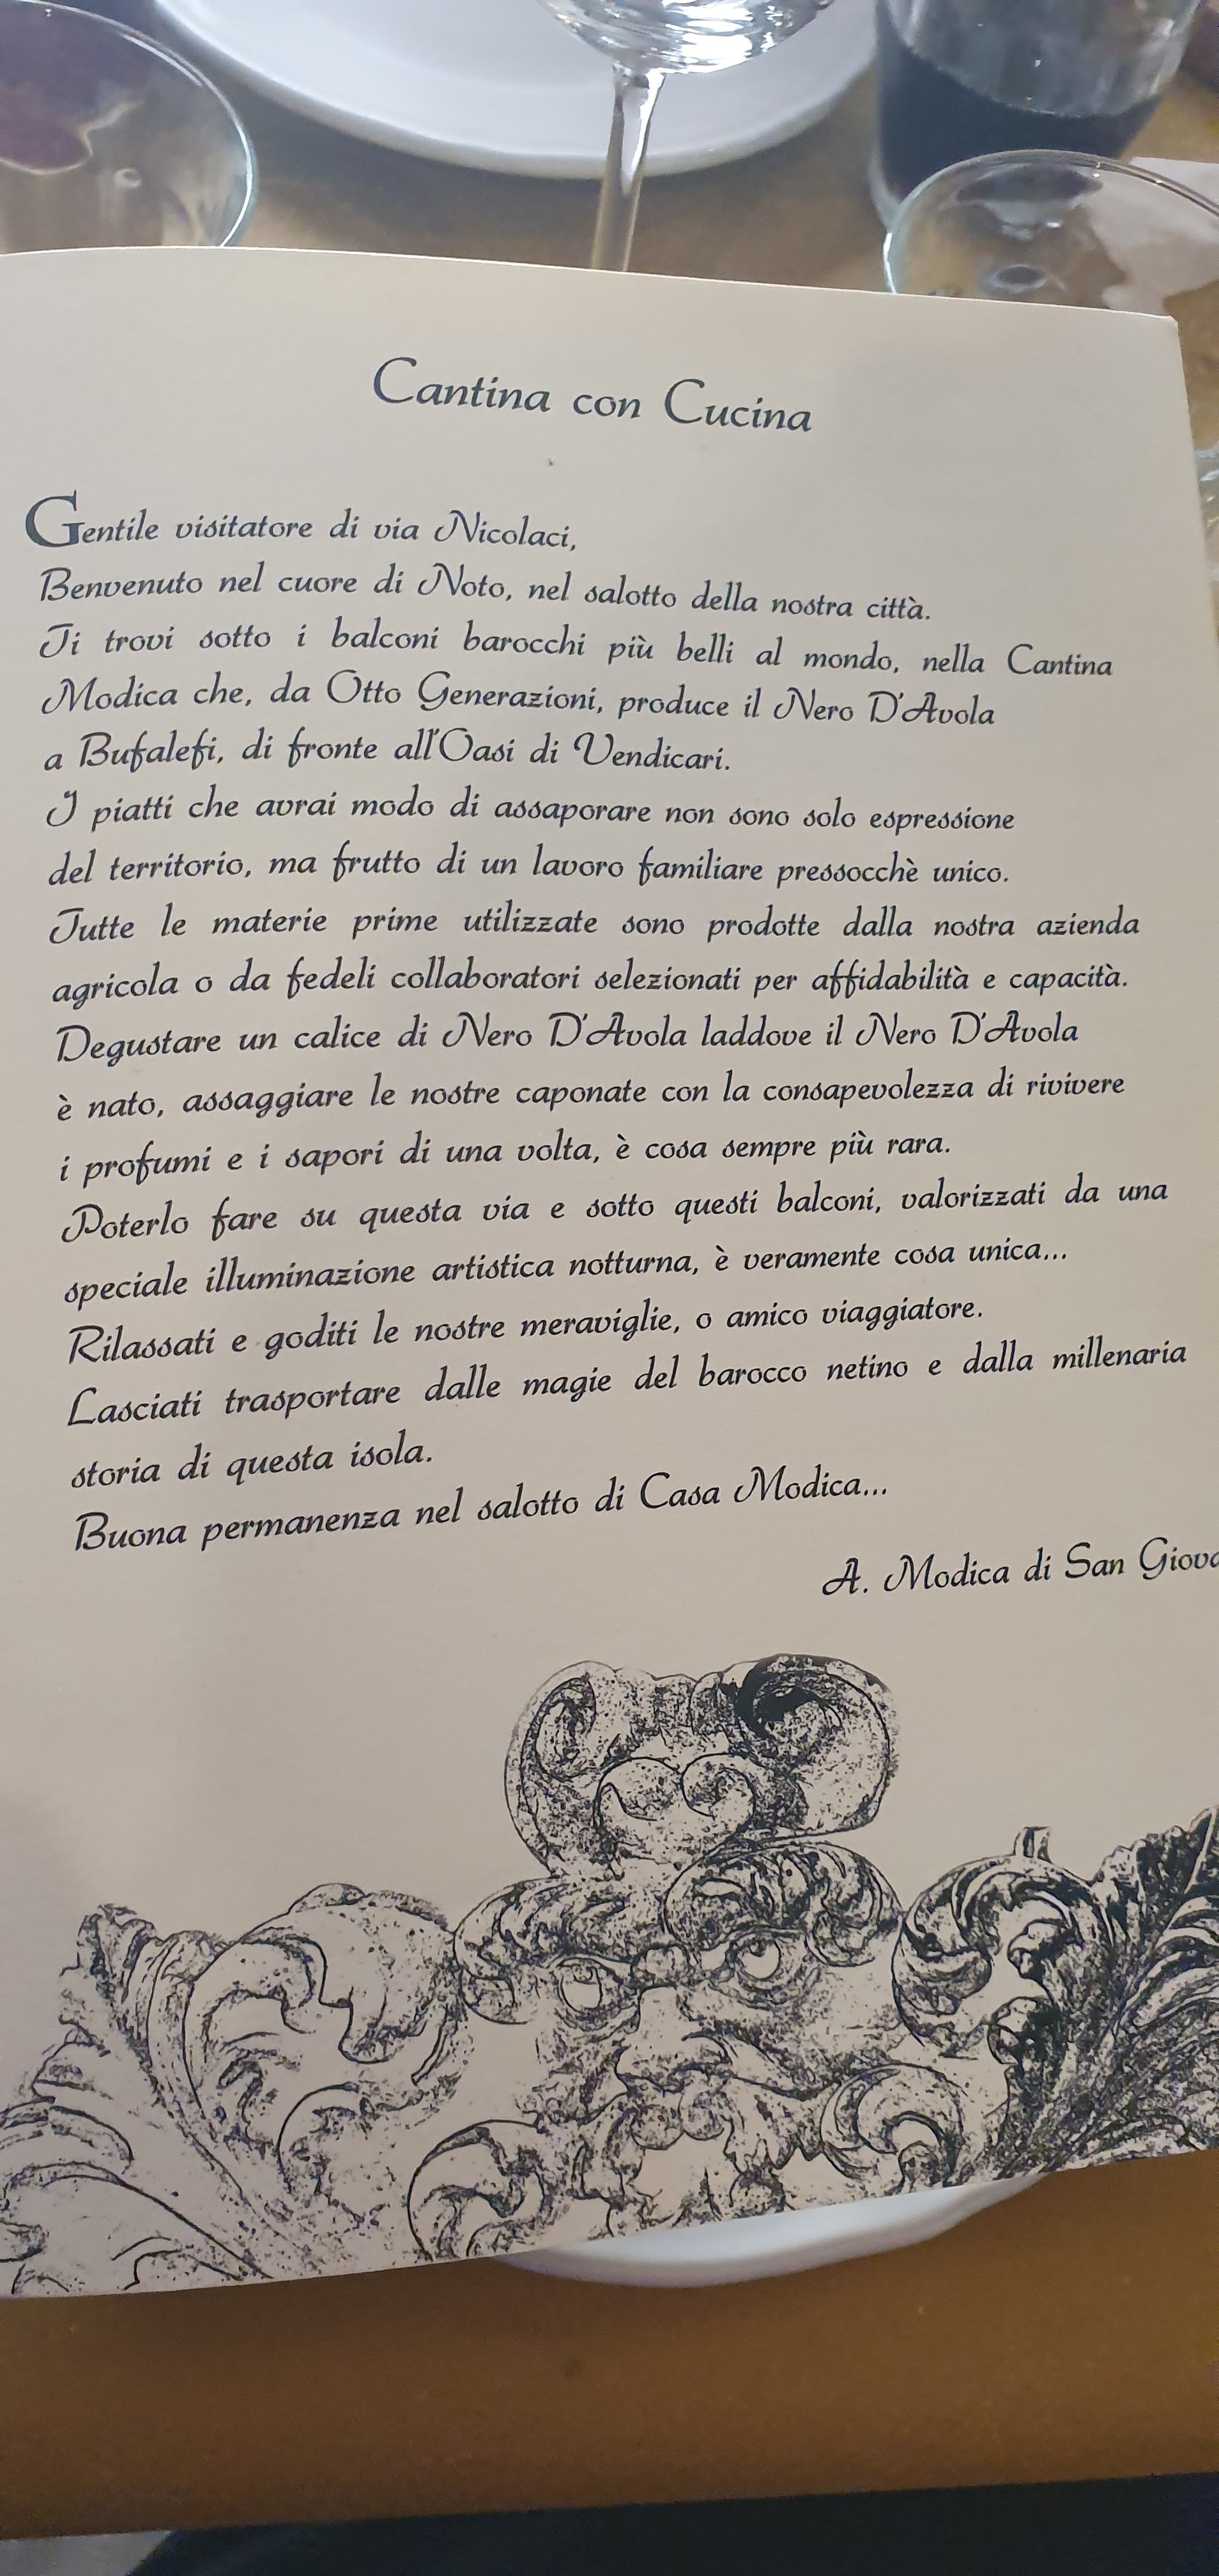 Cantina con Cucina
Gentile visitatore di via Nicolaci,
Benvenuto nel cuore di Noto, nel salotto della nostra città.
Ti trovi sotto i balconi barocchi più belli al mondo, nella Cantina
Modica che, da Otto Generazioni, produce il Nero D'Avola
a Bufalefi, di fronte all'Oasi di Vendicari.
I piatti che avrai modo di assaporare non sono solo espressione
del territorio, ma frutto di un lavoro familiare pressocchè unico.
Tutte le materie prime utilizzate sono prodotte dalla nostra azienda
agricola o da fedeli collaboratori selezionati per affidabilità e capacità.
Degustare un calice di Nero D'Avola laddove il Nero D'Avola
è nato, assaggiare le nostre caponate con la consapevolezza di rivivere
i profumi e i sapori di una volta, è cosa sempre più rara.
Poterlo fare su questa via e sotto questi balconi, valorizzati da una
speciale illuminazione artistica notturna, è veramente cosa unica...
Rilassati e goditi le nostre meraviglie, o amico viaggiatore.
Lasciati trasportare dalle magie del barocco netino e dalla millenaria
storia di questa isola.
Buona permanenza nel salotto di Casa Modica...
A. Modica di San